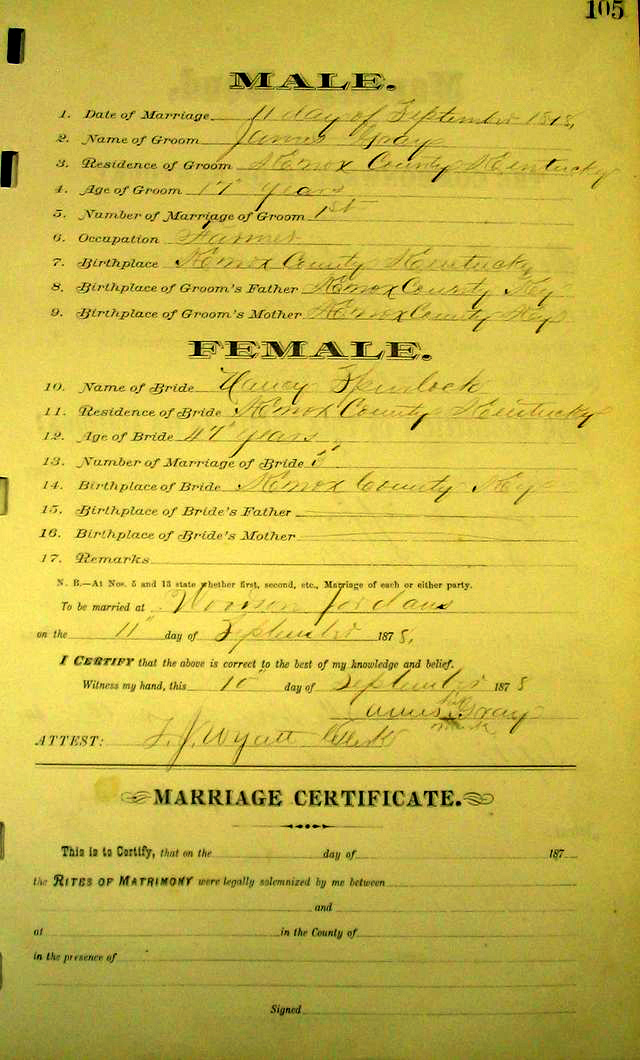 105
MALE.
1. Date of Marriage 11 day of September 1878,
2. Name of Groom James Gray
3. Residence of Groom Knox County Kentucky
4. Age of Groom 17 years
5. Number of Marriage of Groom 1st
6. Occupation Farmer
7. Birthplace Knox County Kentucky
8. Birthplace of Groom's Father Knox County Ky
9. Birthplace of Groom's Mother Knox County Ky
FEMALE.
10. Name of Bride Nancy
11. Residence of Bride Knox County Kentucky
12. Age of Bride 47 years
13. Number of Marriage of Bride
14. Birthplace of Bride Knox County Ky
15. Birthplace of Bride's Father
16. Birthplace of Bride's Mother
17. Remarks
N. B.—At Nos. 5 and 13 state whether first, second, etc., Marriage of each or either party.
To be married at Jordans
on the 11" day of September 1878,
I CERTIFY that the above is correct to the best of my knowledge and belief.
Witness my hand, this 10" day of September 1878
James his Gray
mark
ATTEST: Wyatt Clerk
MARRIAGE CERTIFICATE.
This is to Certify, that on the day of 187
the RITES OF MATRIMONY were legally solemnized by me between
and
at in the County of
in the presence of
Signed